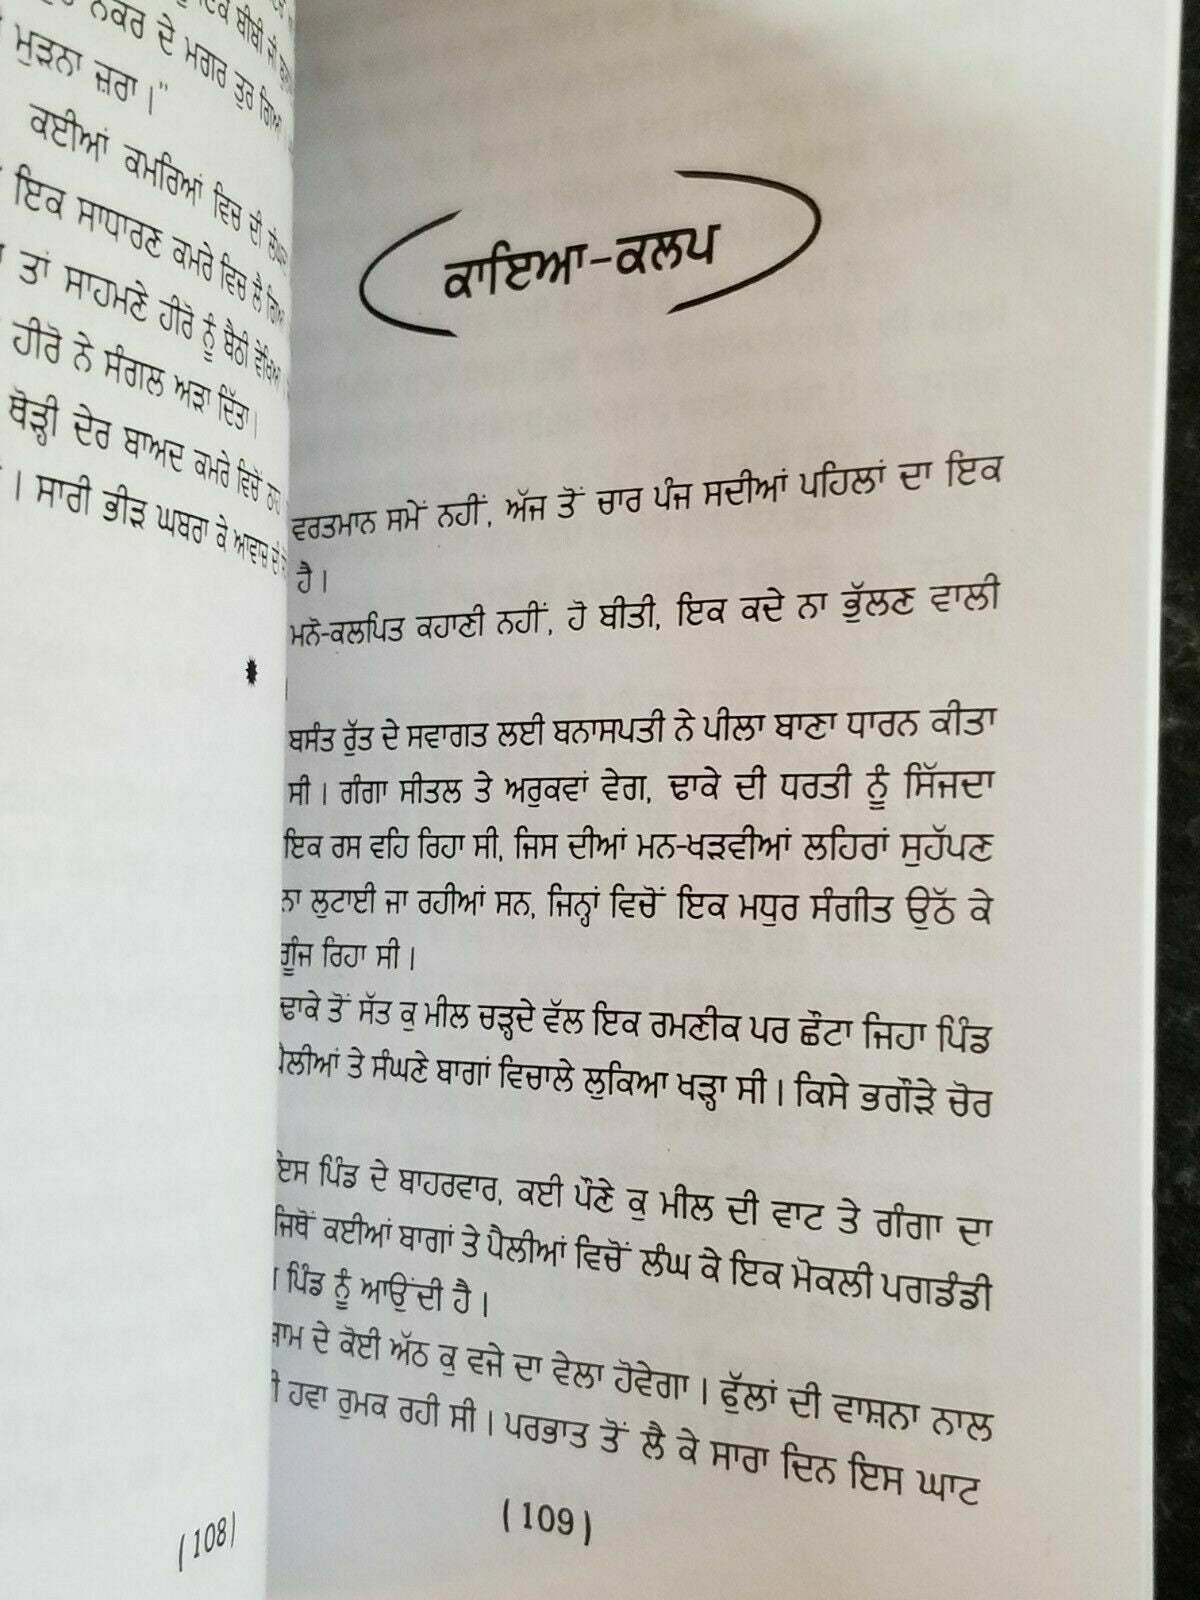 ਨਕਰ ਦੇ ਮਗਰ ਤੁਰ ਗਿਆ
ਮੁੜਨਾ ਜ਼ਰਾ।”
ਕਈਆਂ ਕਮਰਿਆਂ ਵਿਚ ਦੀ
ਇਕ ਸਾਧਾਰਣ ਕਮਰੇ ਵਿਚ ਲੈ ਗਿਆ
ਤਾਂ ਸਾਹਮਣੇ ਹੀਰੋ ਨੂੰ ਬੈਠੀ ਵੇਖਿਆ
ਹੀਰੋ ਨੇ ਸੰਗਲ ਅੜਾ ਦਿੱਤਾ।
ਥੋੜ੍ਹੀ ਦੇਰ ਬਾਅਦ ਕਮਰੇ ਵਿਚੋਂ
। ਸਾਰੀ ਭੀੜ ਘਬਰਾ ਕੇ ਆਵਾਜ਼ ਦੇ
(108)
ਕਾਇਆ-ਕਲਪ
ਵਰਤਮਾਨ ਸਮੇਂ ਨਹੀਂ, ਅੱਜ ਤੋਂ ਚਾਰ ਪੰਜ ਸਦੀਆਂ ਪਹਿਲਾਂ ਦਾ ਇਕ
ਹੈ।
ਮਨੋ-ਕਲਪਿਤ ਕਹਾਣੀ ਨਹੀਂ, ਹੋ ਬੀਤੀ, ਇਕ ਕਦੇ ਨਾ ਭੁੱਲਣ ਵਾਲੀ
।
ਬਸੰਤ ਰੁੱਤ ਦੇ ਸਵਾਗਤ ਲਈ ਬਨਾਸਪਤੀ ਨੇ ਪੀਲਾ ਬਾਣਾ ਧਾਰਨ ਕੀਤਾ
ਸੀ। ਗੰਗਾ ਸੀਤਲ ਤੇ ਅਰੁਕਵਾਂ ਵੇਗ, ਢਾਕੇ ਦੀ ਧਰਤੀ ਨੂੰ ਸਿੰਜਦਾ
ਇਕ ਰਸ ਵਹਿ ਰਿਹਾ ਸੀ, ਜਿਸ ਦੀਆਂ ਮਨ-ਖੜਵੀਆਂ ਲਹਿਰਾਂ ਸੁਹੱਪਣ
ਨਾ ਲੁਟਾਈ ਜਾ ਰਹੀਆਂ ਸਨ, ਜਿਨ੍ਹਾਂ ਵਿਚੋਂ ਇਕ ਮਧੁਰ ਸੰਗੀਤ ਉਠੱ ਕੇ
ਗੂੰਜ ਰਿਹਾ ਸੀ।
ਢਾਕੇ ਤੋਂ ਸੱਤ ਕੁ ਮੀਲ ਚੜ੍ਹਦੇ ਵੱਲ ਇਕ ਰਮਣੀਕ ਪਰ ਛੋਟਾ ਜਿਹਾ ਪਿੰਡ
ਪੈਲੀਆਂ ਤੇ ਸੰਘਣੇ ਬਾਗਾਂ ਵਿਚਾਲੇ ਲੁਕਿਆ ਖੜ੍ਹਾ ਸੀ। ਕਿਸੇ ਭਗੌੜੇ ਚੋਰ
ਇਸ ਪਿੰਡ ਦੇ ਬਾਹਰਵਾਰ, ਕਈ ਪੌਣੇ ਕੁ ਮੀਲ ਦੀ ਵਾਟ ਤੇ ਗੰਗਾ ਦਾ
ਜਿਥੋਂ ਕਈਆਂ ਬਾਗਾਂ ਤੇ ਪੈਲੀਆਂ ਵਿਚੋਂ ਲੰਘ ਕੇ ਇਕ ਮੋਕਲੀ ਪਗਡੰਡੀ
ਪਿੰਡ ਨੂੰ ਆਉਂਦੀ ਹੈ।
ਸ਼ਾਮ ਦੇ ਕੋਈ ਅੱਠ ਕੁ ਵਜੇ ਦਾ ਵੇਲਾ ਹੋਵੇਗਾ। ਫੁੱਲਾਂ ਦੀ ਵਾਸ਼ਨਾ ਨਾਲ
ਹਵਾ ਰੁਮਕ ਰਹੀ ਸੀ। ਪਰਭਾਤ ਤੋਂ ਲੈ ਕੇ ਸਾਰਾ ਦਿਨ ਇਸ ਘਾਟ
(109)